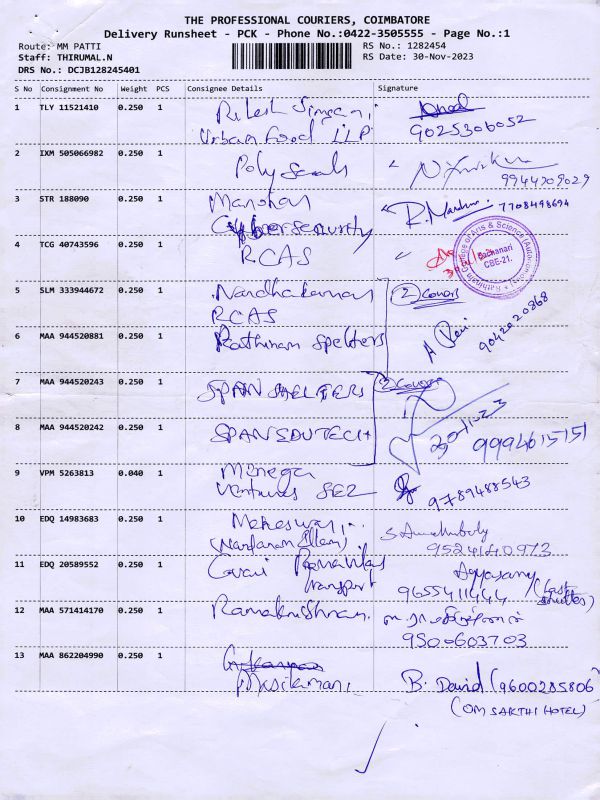 THE PROFESSIONAL COURIERS, COIMBATORE
Delivery Runsheet - PCK - Phone No.:0422-3505555 - Page No.:1
Route: MM PATTI
RS No.: 1282454
Staff: THIRUMAL.N
RS Date: 30-Nov-2023
DRS No.: DCJB128245401
S No Consignment No Weight PCS Consignee Details Signature
1 TLY 11521410 0.250 1 Ritesh
Urban Food LLP 9025306052
2 IXM 505066982 0.250 1 Poly Seals
9944709029
3 STR 188090 0.250 1 Manohar R. 7708498694
Cybersecurity
4 TCG 40743596 0.250 1 RCAS
Rathinam College of Arts & Science (Autonomous)
Eachanari
CBE-21.
5 SLM 333944672 0.250 1 Nandhakumar (2) Covers
RCAS
6 MAA 944520881 0.250 1 Rathinam Spelters A Ravi 9042020868
7 MAA 944520243 0.250 1 SPAN SHELTERS (2) Covers
8 MAA 944520242 0.250 1 SPAN EDUTECH 30/11/23 9994615151
9 VPM 5263813 0.040 1
Ventures SEZ 9789488543
10 EDQ 14983683 0.250 1 Maheswari
9524140973
11 EDQ 20589552 0.250 1
Transport 9655411444
12 MAA 571414170 0.250 1 Ramakrishnan.
9500603703
13 MAA 862204990 0.250 1
B. David (9600285806)
(OM SAKTHI HOTEL)